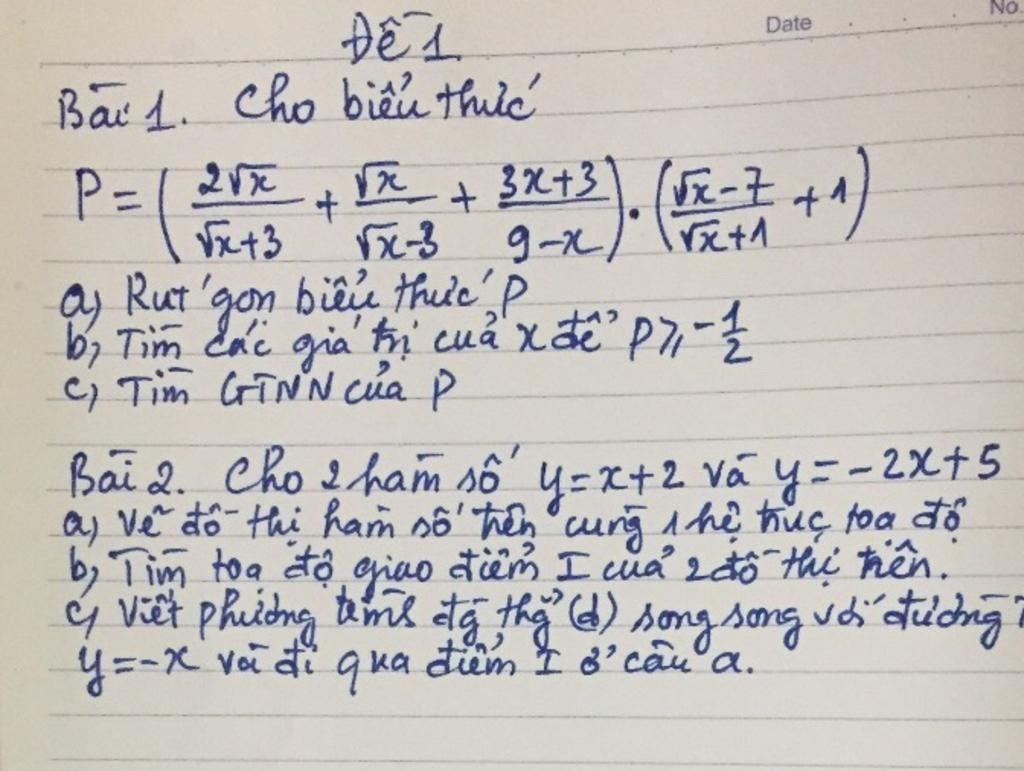 Date No.
Đề 1
Bài 1. Cho biểu thức
P = ( 2√x / (√x+3) + √x / (√x-3) + (3x+3) / (9-x) ) . ( (√x-7) / (√x+1) + 1 )
a, Rút gọn biểu thức P
b, Tìm các giá trị của x để P ⩾ -1/2
c, Tìm GTNN của P
Bài 2. Cho 2 hàm số y=x+2 và y=-2x+5
a, Vẽ đồ thị hàm số trên cùng 1 hệ trục toạ độ
b, Tìm toạ độ giao điểm I của 2 đồ thị trên.
c, Viết phương đg thg (d) song song với đường
y=-x và đi qua điểm I ở câu a.